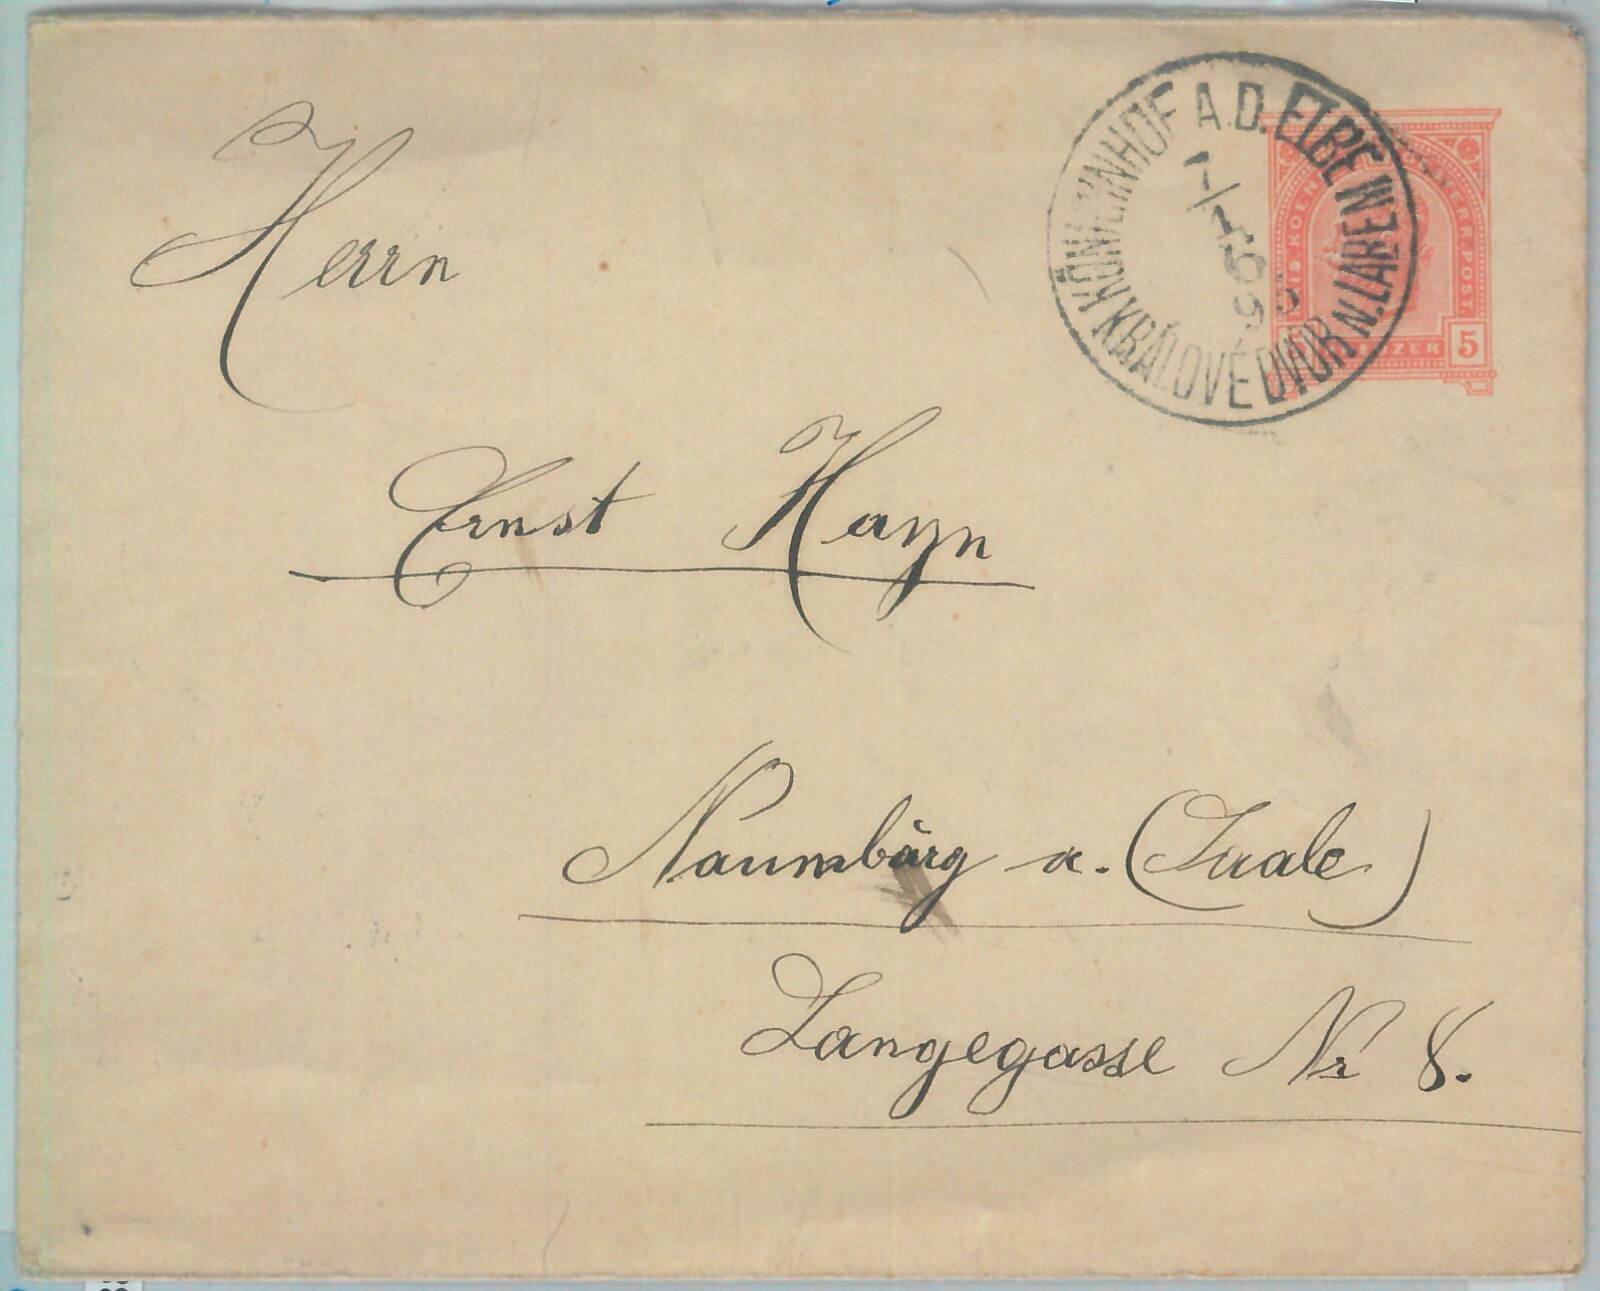 KÖNIGINHOF A.D. ELBE
KRÁLOVÉ DVŮR N.LABEM
5
Herrn
Ernst Hayn
Naumbùrg a. (Saale)
Langegasse Nr 8.